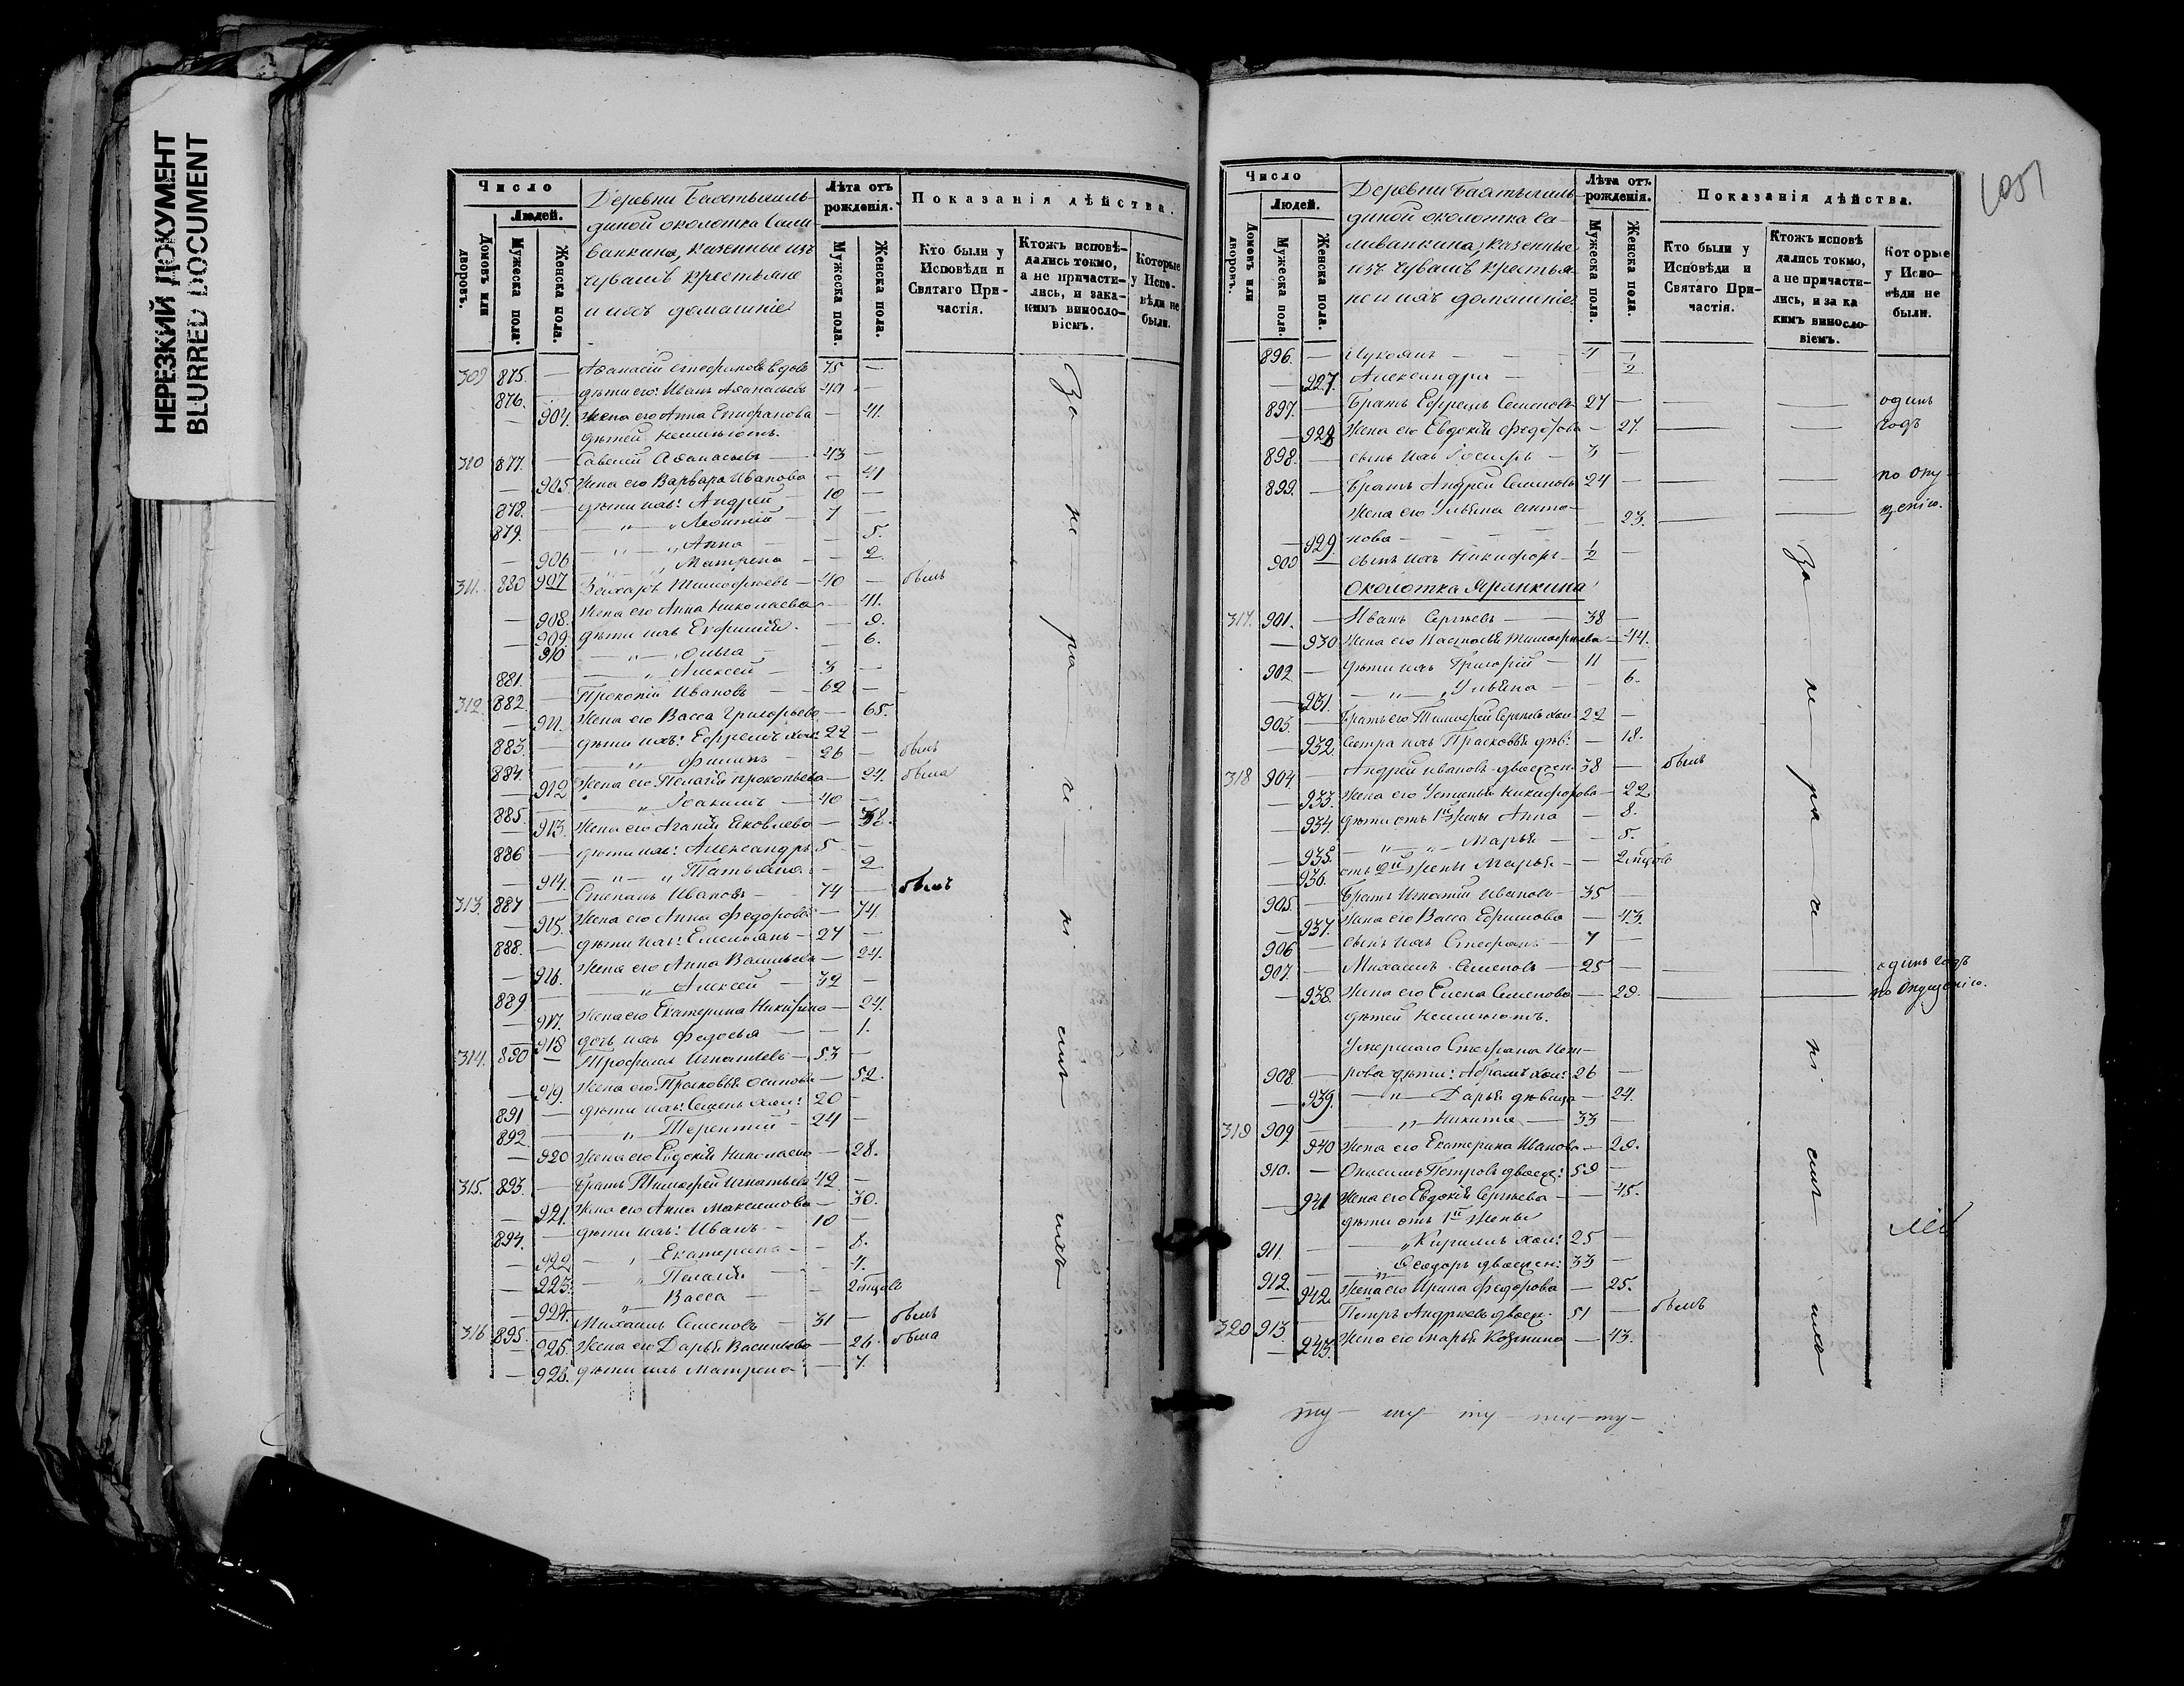 НЕРЕЗКИЙ ДОКУМЕНТ
BLURRED DOCUMENT
Число
Людей.
Домовъ или дворовъ.
Мужеска пола.
Женска пола.
Деревни
диной околотка Сали
ванкина, казенные изъ
чувашъ крестьяне
и ихъ домашніе
Лѣта отъ рожденія.
Мужеска пола.
Женска пола.
Показанія дѣйства.
Кто были у Исповѣди и Святаго Причастія.
Ктожъ исповѣдались токмо, а не причастились, и за какимъ винословіемъ.
Которые у Исповѣди не были.
309 875. — Аѳанасій Стефановъ вдовъ 75 —
876. — дѣти его: Иванъ Аѳанасьевъ —
— 904. Жена его Анна Епифанова — 41.
дѣтей неимѣютъ.
310 877. — Савелій Аѳанасьевъ — 43 —
— 905. Жена его Варвара Иванова — 41
878. — дѣти ихъ: Андрей — 10 —
879. — „ — „ Леонтій — 7 —
— „ — „ Анна — — 5.
— 906 — „ Матрена — — 2.
311. 880 907 Захаръ Тимофѣевъ — 40 — былъ
— 908. Жена его Анна Николаева — 41.
— 909. дѣти ихъ Евфимія — — 9.
— 910 — „ — Ольга — — 6.
881. — „ Алексей — 3 —
312. 882. — Прокопій Ивановъ — 62 —
— 911. Жена его Васса Григорьева — 65.
883. — дѣти ихъ: Ефремъ хол: 22 —
884. — „ Филипъ — 26 — былъ
— 912 Жена его Пелагія Прокопьева — 24. была
885. — „ Іоакимъ — 40 —
— 913. Жена его Агапія Яковлева — 38.
886 — дѣти ихъ: Александръ 5 —
— 914. — „ — „ Татьяна — — 2
313. 887 — Степанъ Ивановъ — 74 — былъ
— 915. Жена его Анна Федорова — 74.
888. — дѣти ихъ: Емельянъ — 27 —
— 916. Жена его Анна Васильева — 24.
889 — „ Алексей — 32 —
— 917. Жена его Екатерина Никитина — 24.
— 918 дочь ихъ Федосья — — 1.
314. 890 — Трофимъ Игнатьевъ — 53 —
— 919. Жена его Прасковья Осипова — 52.
891 — дѣти ихъ: Семенъ хол: 20 —
892. — „ — Терентій — 24 —
— 920 Жена его Евдокія Николаева — 28.
315. 893. — братъ Тимофей Игнатьевъ 42 —
— 921. Жена его Анна Максимова — 30.
894. — дѣти ихъ: Иванъ — 10 —
— 922 — „ Екатерина — — 8.
— 923. — „ Пелагія — — 4.
— 924. „ — Васса — — 2 мѣсцовъ
316 895. — Михаилъ Семеновъ 31 — былъ
— 925. Жена его Дарья Васильева — 26. была
— 926. дѣти ихъ Матрена — 7.
За — не — ра — че — ні — емъ — ихъ
Число
Людей.
Домовъ или дворовъ.
Мужеска пола.
Женска пола.
Деревни
диной околотка Са-
ливанкина, казенные
изъ чувашъ крестья-
не и ихъ домашніе.
Лѣта отъ рожденія.
Мужеска пола.
Женска пола.
Показанія дѣйства.
Кто были у Исповѣди и Святаго Причастія.
Ктожъ исповѣдались токмо, а не причастились, и за какимъ винословіемъ.
Которые у Исповѣди не были.
896. — Лукоянъ — 4 —
— 927. Александра — — 1/2
897. — Братъ Ефремъ Семеновъ 27 — одинъ
— 928 Жена его Евдокія Федорова — 27. годъ
898. — сынъ ихъ Іосифъ — 3 —
899. — Братъ Андрей Семеновъ 24 — по опу-
Жена его Ульяна Анто- — 23. щенію.
— 929. нова —
900 — сынъ ихъ Никифоръ — 1/2 —
Околотка Яранкина
317. 901. — Иванъ Сергѣевъ — 38 —
— 930 Жена его Настасья Тимофѣева — 44.
902 — дѣти ихъ Григорій — 11 —
— 931. — „ — „ Ульяна — — 6.
903. — Братъ его Тимофей Сергѣевъ хол: 22 —
— 932. Сестра ихъ Прасковья дѣв: — 18.
318 904. — Андрей Ивановъ двоежен: 38 — былъ
— 933. Жена его Устинья Никифорова — 22
— 934. дѣти отъ 1й Жены Анна — 8.
— 935. — „ — „ — Марья — — 5.
— 936. отъ 2й Жены Марья — — 2 мѣсцовъ
905. — Братъ Игнатій Ивановъ — 35 —
— 937. Жена его Васса Ефимова — 43.
906 — сынъ ихъ Стефанъ — 7 —
907. — Михаилъ Семеновъ — 25 — одинъ годъ
— 938. Жена его Елена Семенова — 29. по опущенію.
дѣтей неимѣютъ.
Умершаго Стефана Пет-
908. — рова дѣти: Абрамъ хол: 26 —
— 939. — „ — Дарья дѣвица — 24.
319 909 — „ Никита — 33 —
— 940 Жена его Екатерина Иванова — 29.
910. — Онисимъ Петровъ двоеж: 59 —
— 941 Жена его Евдокія Сергѣева — 45.
дѣти отъ 1й Жены
911 — „ Кирилъ хол: 25 —
912. — „ Ѳеодоръ двоежен: 33 —
— 942. Жена его Ирина Федорова — 25.
320 913. — Петръ Андреевъ двоеж. 51 — былъ
— 943. Жена его Марья Козмина — 43.
За — не — ра — че — ні — емъ — ихъ
ту — ту — ту — ту — ту —